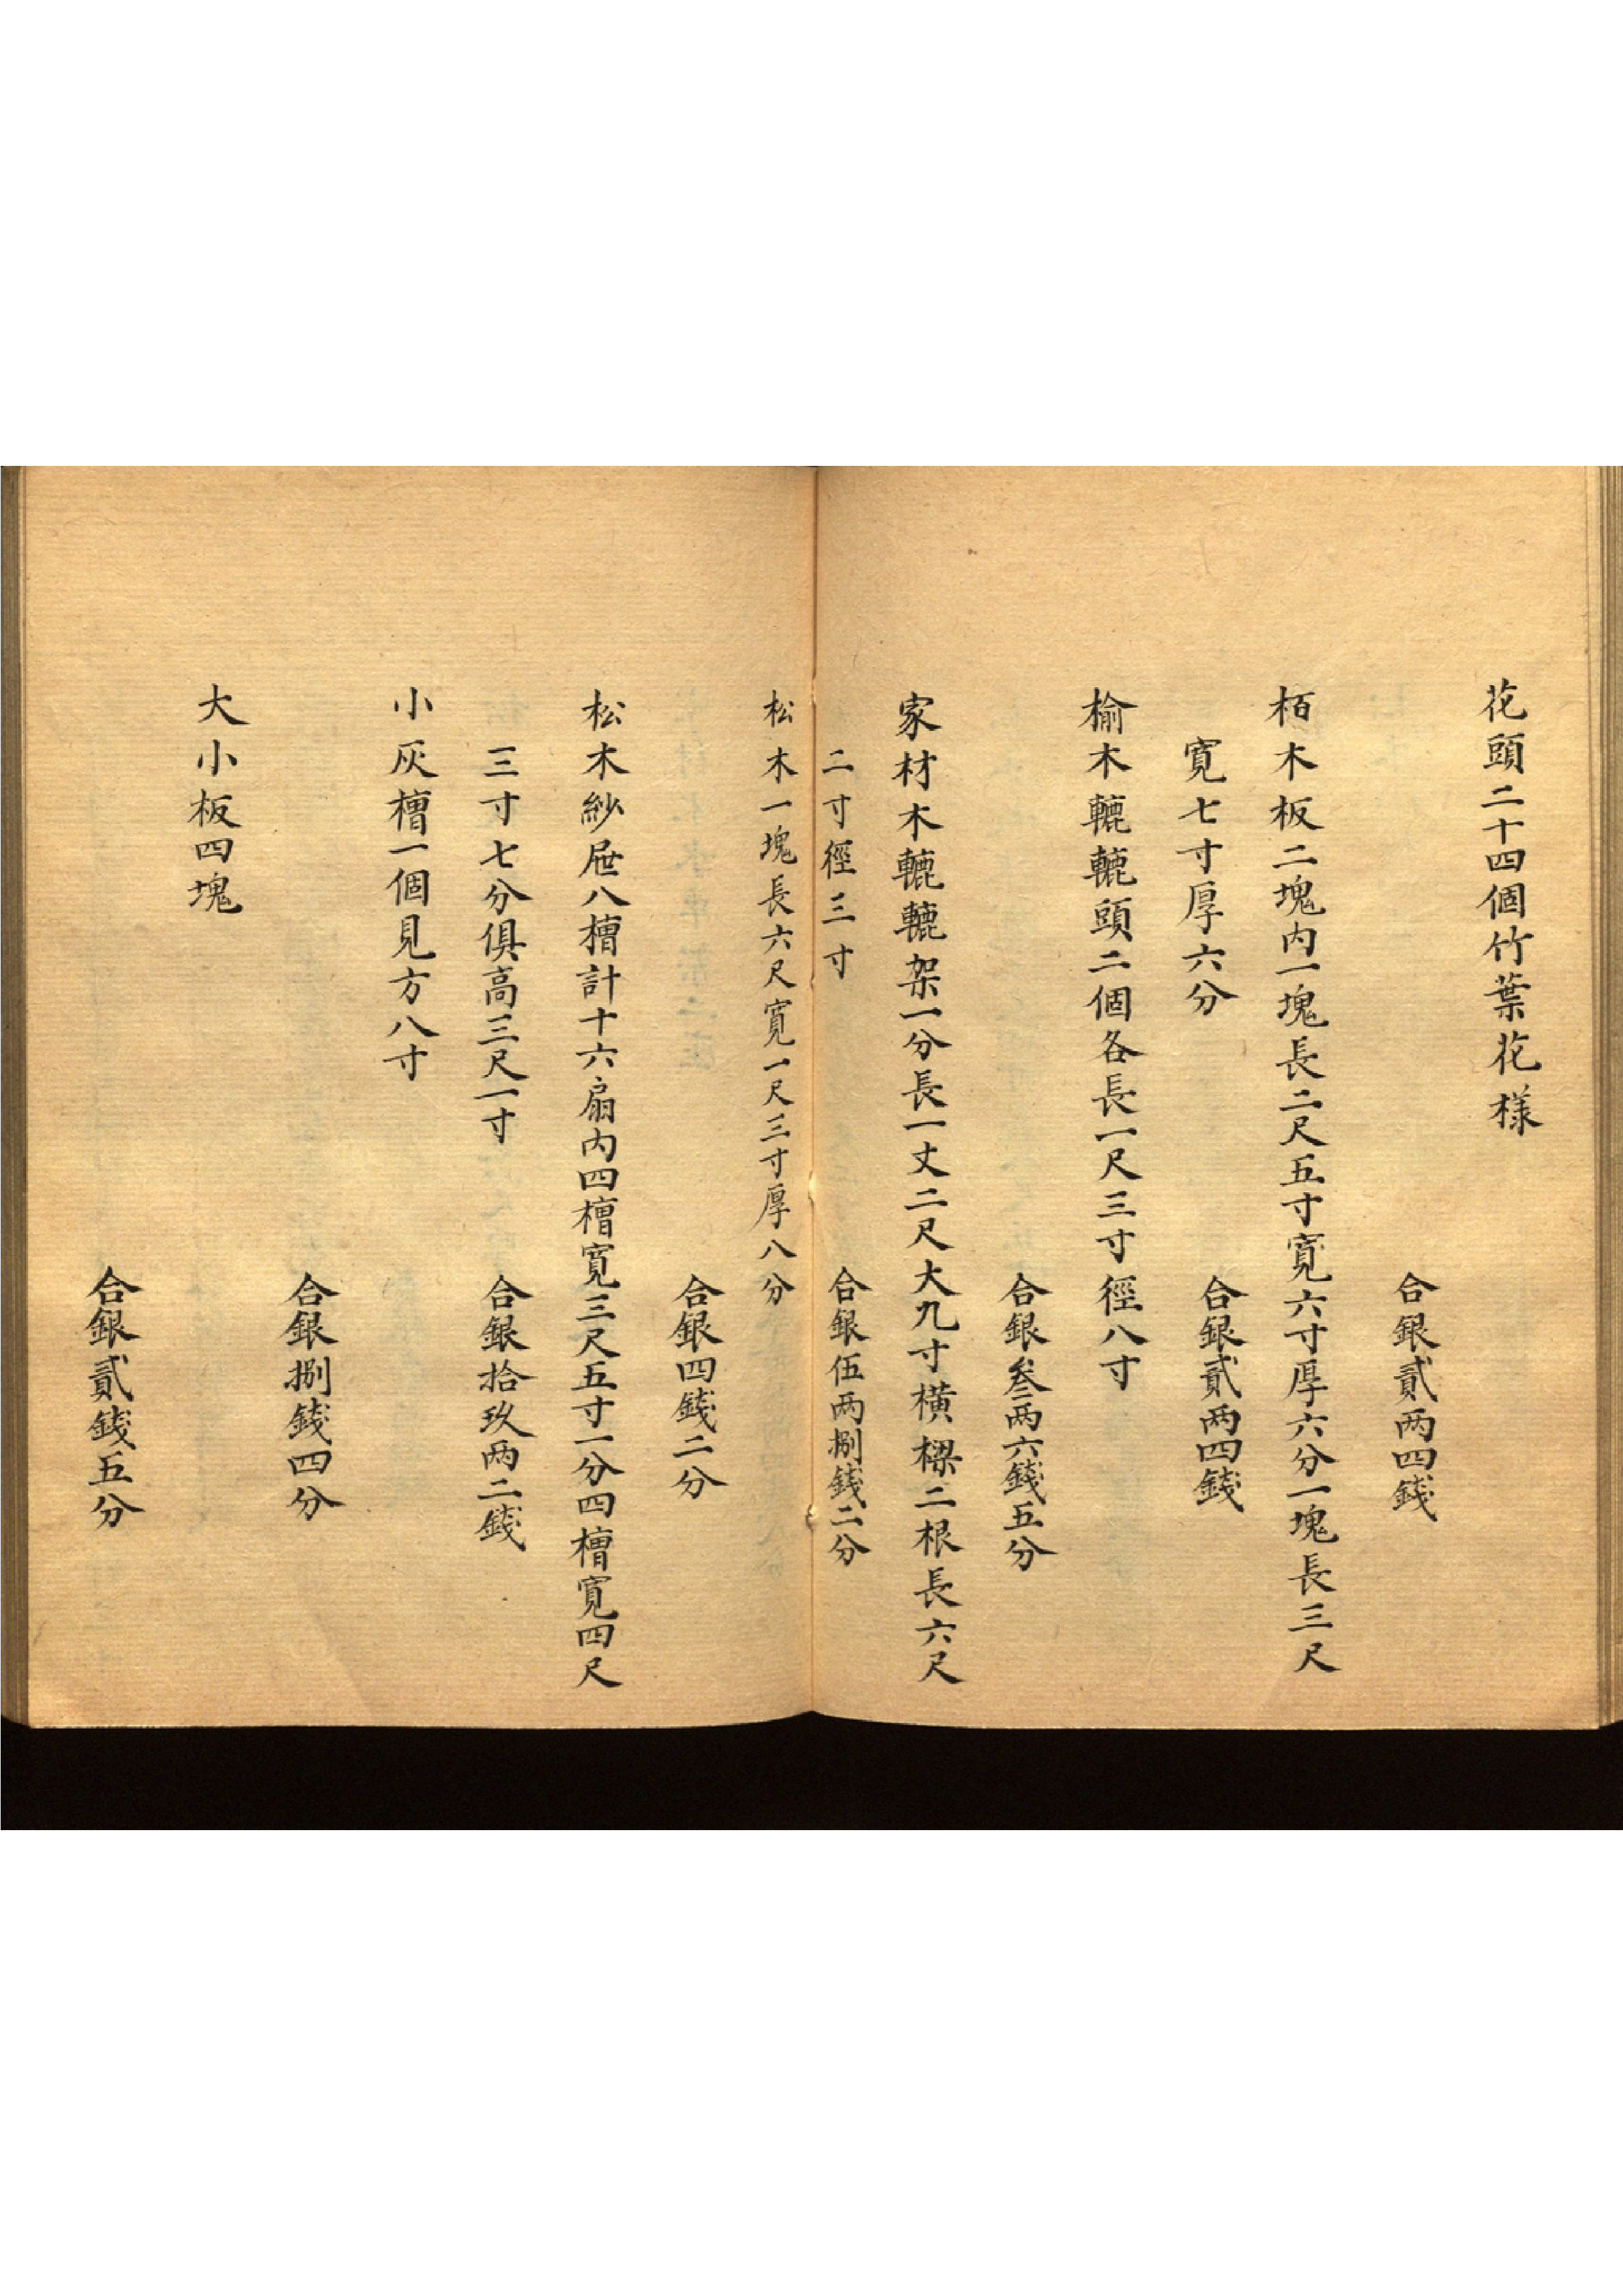 花頭二十四個竹葉花樣
合銀貳两四錢
栢木板二塊内一塊長二尺五寸寬六寸厚六分一塊長三尺
寬七寸厚六分
合銀貳两四錢
榆木轆轆頭二個各長一尺三寸徑八寸
合銀叁两六錢五分
家材木轆轆架一分長一丈二尺大九寸橫樑二根長六尺
二寸徑三寸
合銀伍两捌錢二分
松木一塊長六尺寬一尺三寸厚八分
合銀四錢二分
松木紗屉八槽計十六扇内四槽寬三尺五寸一分四槽寬四尺
三寸七分俱高三尺一寸
合銀拾玖两二錢
小灰槽一個見方八寸
合銀捌錢四分
大小板四塊
合銀貳錢五分